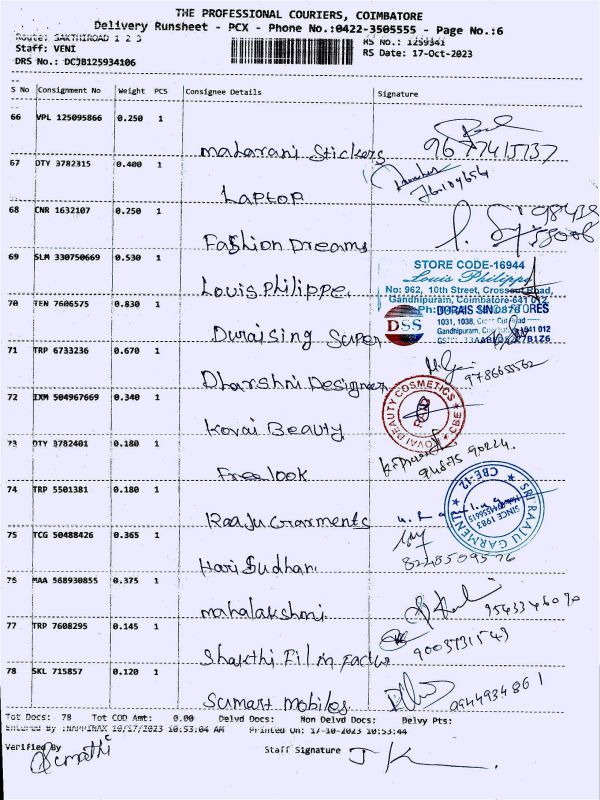 THE PROFESSIONAL COURIERS, COIMBATORE
Delivery Runsheet - PCX - Phone No.:0422-3505555 - Page No.:6
Route: SAKTHIROAD 1 2 3
RS No.: 1259341
Staff: VENI
RS Date: 17-Oct-2023
DRS No.: DCJB125934106
S No Consignment No Weight PCS Consignee Details Signature
66 VPL 125095866 0.250 1
Maharani Stickers
9677415737
67 DTY 3782315 0.400 1
Laptop
68 CNR 1632107 0.250 1
Fashion Dreams
69 SLM 330750669 0.530 1
STORE CODE-16944
Louis Philippe
No: 962, 10th Street, Crosscut Road,
Gandhipuram, Coimbatore-641 012
Louis Philippe.
70 TEN 7606575 0.830 1
DSS
DURAI SINGH STORES
1031, 1038, Cross Cut Road
Gandhipuram,
Duraising Super
71 TRP 6733236 0.670 1
Dharshni Designer
9786655562
72 IXM 504967669 0.340 1
KOVAI BEAUTY COSMETICS
CBE
Kovai Beauty
73 DTY 3782401 0.180 1
Freelook
94875 90224.
74 TRP 5501381 0.180 1
SRI RAAJU GARMENT
CBE-12
SINCE 1983
Raaju Garments
75 TCG 50488426 0.365 1
Hari Sudhan
8248509576
75 MAA 568930855 0.375 1
mahalakshmi
9543346070
77 TRP 7608295 0.145 1
Shakthi Film Factor
9003731543
78 SKL 715857 0.120 1
Sumart Mobiles
0944934861
Tot Docs: 78 Tot COD Amt: 0.00 Delvd Docs: Non Delvd Docs: Delvy Pts:
Entered By 10/17/2023 10:53:04 AM Printed On: 17-10-2023 10:53:44
Verified By
Staff Signature